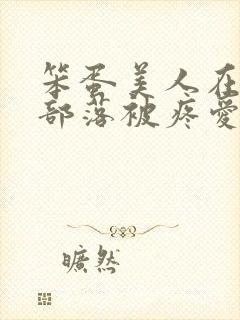 笨蛋美人在
部落被疼爱
旷然